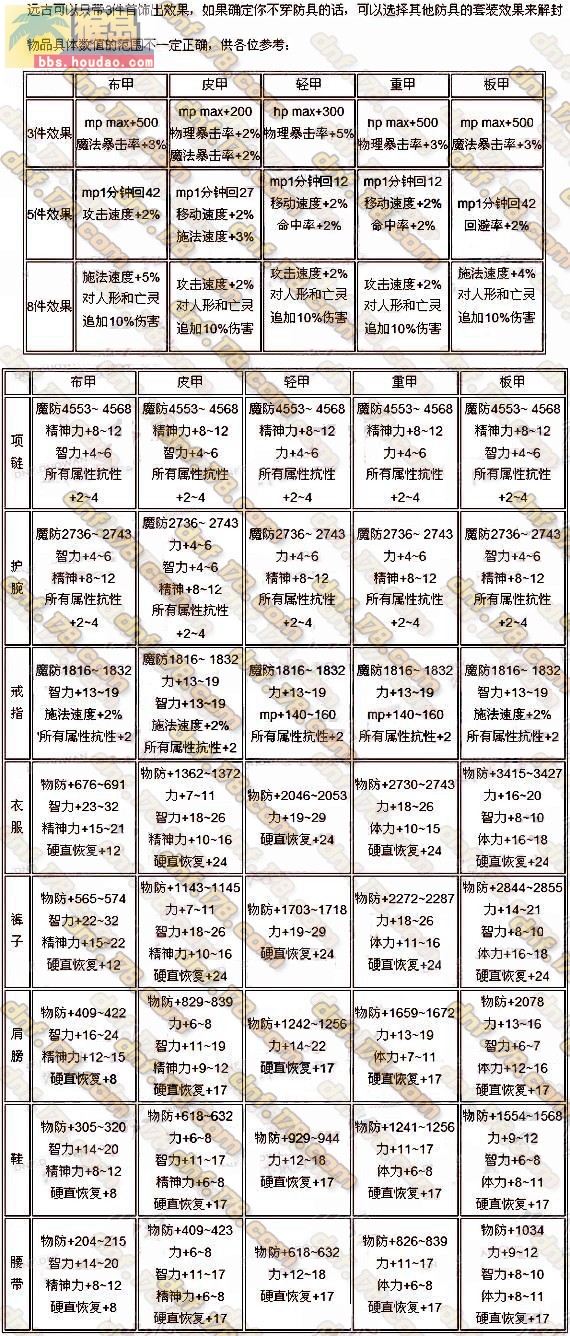 远古可以只带3件首饰出效果，如果确定你不穿防具的话，可以选择其他防具的套装效果来解封
物品具体数值的范围不一定正确，供各位参考：
猴岛
bbs.houdao.com
布甲 皮甲 轻甲 重甲 板甲
3件效果
mp max+500
魔法暴击率+3%
mp max+200
物理暴击率+2%
魔法暴击率+2%
hp max+300
物理暴击率+5%
hp max+500
物理暴击率+3%
mp max+500
魔法暴击率+3%
5件效果
mp1分钟回42
攻击速度+2%
mp1分钟回27
移动速度+2%
施法速度+3%
mp1分钟回12
移动速度+2%
命中率+2%
mp1分钟回12
移动速度+2%
命中率+2%
mp1分钟回42
回避率+2%
8件效果
施法速度+5%
对人形和亡灵
追加10%伤害
攻击速度+2%
对人形和亡灵
追加10%伤害
攻击速度+2%
对人形和亡灵
追加10%伤害
攻击速度+2%
对人形和亡灵
追加10%伤害
施法速度+4%
对人形和亡灵
追加10%伤害
布甲 皮甲 轻甲 重甲 板甲
项链
魔防4553~ 4568
精神力+8~12
智力+4~6
所有属性抗性
+2~4
魔防4553~ 4568
精神力+8~12
智力+4~6
所有属性抗性
+2~4
魔防4553~ 4568
精神力+8~12
力+4~6
所有属性抗性
+2~4
魔防4553~ 4568
精神力+8~12
力+4~6
所有属性抗性
+2~4
魔防4553~ 4568
精神力+8~12
智力+4~6
所有属性抗性
+2~4
护腕
魔防2736~ 2743
智力+4~6
精神+8~12
所有属性抗性
+2~4
魔防2736~ 2743
力+4~6
智力+4~6
精神+8~12
所有属性抗性
+2~4
魔防2736~ 2743
力+4~6
精神+8~12
所有属性抗性
+2~4
魔防2736~ 2743
力+4~6
精神+8~12
所有属性抗性
+2~4
魔防2736~ 2743
智力+4~6
精神+8~12
所有属性抗性
+2~4
戒指
魔防1816~ 1832
智力+13~19
施法速度+2%
'所有属性抗性+2
魔防1816~ 1832
力+13~19
智力+13~19
施法速度+2%
所有属性抗性+2
魔防1816~ 1832
力+13~19
mp+140~160
所有属性抗性+2
魔防1816~ 1832
力+13~19
mp+140~160
所有属性抗性+2
魔防1816~ 1832
智力+13~19
施法速度+2%
所有属性抗性+2
衣服
物防+676~691
智力+23~32
精神力+15~21
硬直恢复+12
物防+1362~1372
力+7~11
智力+18~26
精神力+10~16
硬直恢复+24
物防+2046~2053
力+19~29
硬直恢复+24
物防+2730~2743
力+18~26
体力+10~15
硬直恢复+24
物防+3415~3427
力+16~20
智力+8~10
体力+16~18
硬直恢复+24
裤子
物防+565~574
智力+22~32
精神力+15~22
硬直恢复+12
物防+1143~1145
力+7~11
智力+18~26
精神力+10~16
硬直恢复+24
物防+1703~1718
力+19~29
硬直恢复+24
物防+2272~2287
力+18~26
体力+11~16
硬直恢复+24
物防+2844~2855
力+14~21
智力+8~10
体力+16~18
硬直恢复+24
肩膀
物防+409~422
智力+16~24
精神力+12~15
硬直恢复+8
物防+829~839
力+6~8
智力+11~19
精神力+9~12
硬直恢复+17
物防+1242~1256
力+14~22
硬直恢复+17
物防+1659~1672
力+13~19
体力+7~11
硬直恢复+17
物防+2078
力+13~16
智力+6~7
体力+12~16
硬直恢复+17
鞋
物防+305~320
智力+14~20
精神力+8~12
硬直恢复+8
物防+618~632
力+6~8
智力+11~17
精神力+6~8
硬直恢复+17
物防+929~944
力+12~18
硬直恢复+17
物防+1241~1256
力+11~17
体力+6~8
硬直恢复+17
物防+1554~1568
力+9~12
智力+6~8
体力+8~11
硬直恢复+17
腰带
物防+204~215
智力+14~20
精神力+8~12
硬直恢复+8
物防+409~423
力+6~8
智力+11~17
精神力+6~8
硬直恢复+17
物防+618~632
力+12~18
硬直恢复+17
物防+826~839
力+11~17
体力+6~8
硬直恢复+17
物防+1034
力+9~12
智力+8~10
体力+8~11
硬直恢复+17
dnf.78.com